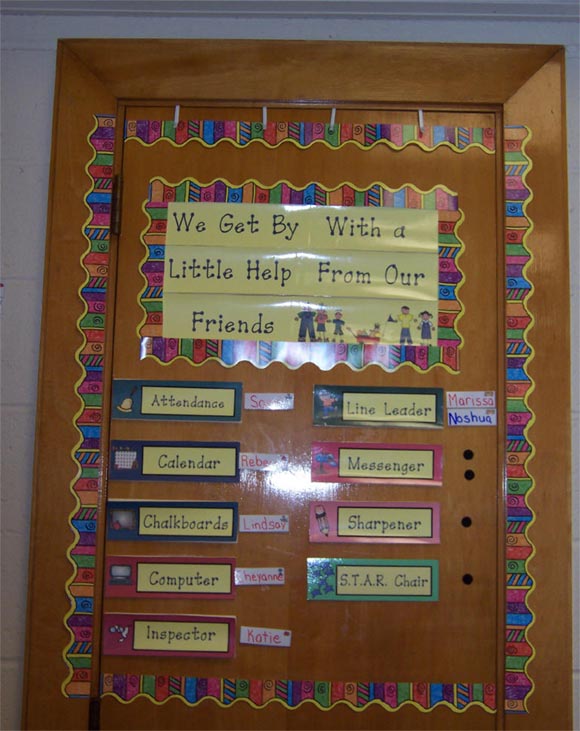 We Get By With a
Little Help From Our
Friends
Attendance
Line Leader Marissa
Noshua
Calendar
Messenger
Chalkboards Lindsay
Sharpener
Computer
S.T.A.R. Chair
Inspector Katie